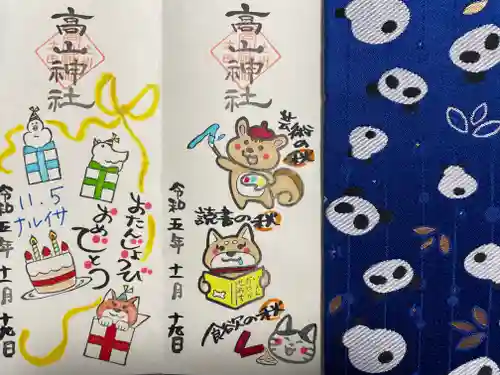 高山神社
11.5
ナルイサ
おたんじょうび
おめでとう
令和五年十一月十九日
高山神社
芸術の秋
読書の秋
食欲の秋
令和五年十一月十九日